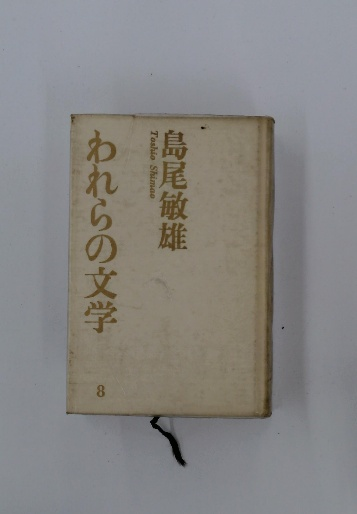 島尾敏雄
Toshio Shimao
われらの文学
8